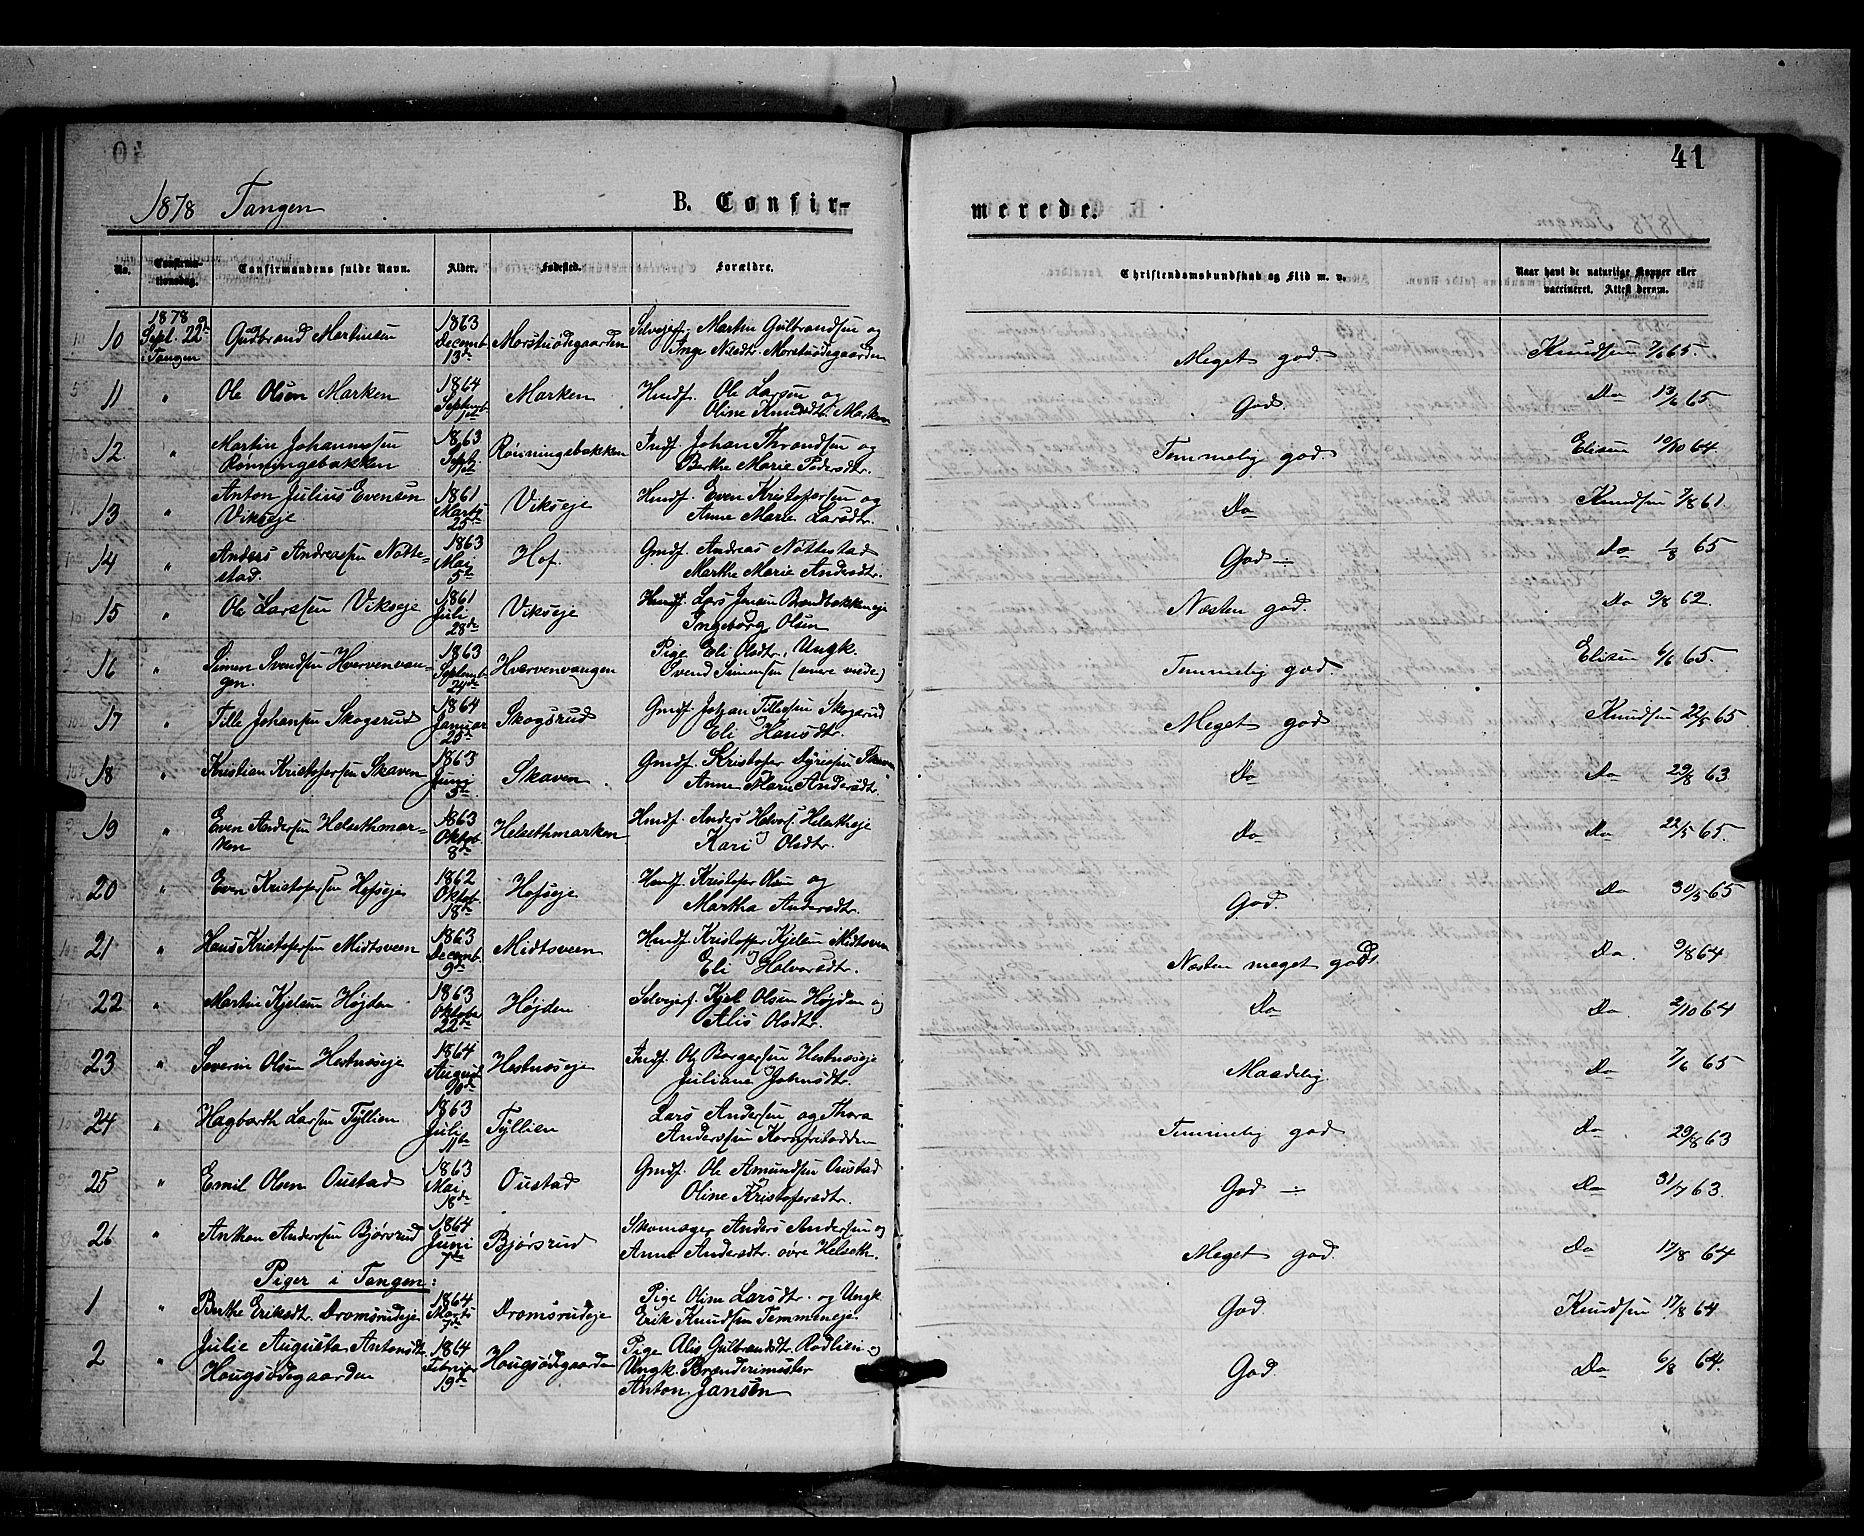 41
1878 Tangen B. Confir- merede.
No. Confirmationsdag. Confirmandens fulde Navn. Alder. Fødested. Forældre. Christendomskundskab og Flid m. v. Naar havt de naturlige Kopper eller vaccineret. Attest derom.
10 1878 Sept. 22de Tangen Gudbrand Martinsen 1863 Decemb. 13de Morstuødegaarden Selvejerf. Martin Gulbrandsen og Inge Nilsdtr. Morstuødegaarden Meget god. Knudsen 7/6 65.
11 " Ole Olsen Marken 1864 Septemb. Marken Husmf. Ole Larsen og Oline Knudsdtr. Marken God. Do 13/6 65
12 " Martin Johannesen Rønningsbakken 1863 Septb. Rønningsbakken Indf. Johan Thrandsen og Berthe Marie Pedersdtr. Temmelig god. Elisen 10/10 64
13 " Anton Julius Evensen Vikseje 1861 Marts 25de Vikseje Husmf. Even Kristofersen og Anne Marie Larsdtr. Do Knudsen 7/8 61.
14 " Anders Andreassen Nøtte- stad. 1863 Mai 5te Hof. Gmdf. Andreas Nøttestad Marthe Marie Andersdtr. God ÷ Do 1/8 65
15 " Ole Larsen Vikseje 1861 Juli 28de Vikseje Husmf. Lars Jensen Brandbakkeneje Ingeborg Olsen Næsten god. Do 9/8 62.
16 " Simen Svendsen Hvervenvan- gen. 1863 Septemb. 24de Hvervenvangen Pige Eli Olsdtr., Ungk. Svend Simensen Temmelig god. Elisen 6/6 65.
17 " Tille Johansen Skogsrud 1864 Januar 25de Skogsrud Gmdf. Johan Tillesen Skogsrud Eli Hansdtr. Meget god Knudsen 22/5 65
18 " Kristian Kristofersen Skaven 1863 Juni 5te Skaven Gmdf. Kristofer Syversen Skaven Anne Marie Andersdtr. Do Do 29/8 63.
19 " Even Andersen Helsethmar- ken 1863 Oktob. 8de Helsethmarken Husmf. Anders Halvors. Helsetheje Kari Olsdtr. Do Do 22/5 65.
20 " Even Kristofersen Hofseje 1862 Oktob. 18de Hofseje Husmf. Kristofer Olsen og Martha Andersdtr. God. Do 30/5 65
21 " Hans Kristofersen Midtsveen 1863 Decemb. 9de Midtsveen Husmf. Kristoffer Kjelsen Midtsveen Eli Halvorsdtr. Næsten meget god. Do. 9/8 64
22 " Martin Kjelsen Højden 1863 Oktober 22de Højden Selvejerf. Kjel Olsen Højden og Alis Olsdtr. Do Do. 2/10 64
23 " Severin Olsen Hestnæseje 1864 August Hestnæseje Indf. Ole Borgersen Hestnæseje Juliane Johnsdtr. Maadelig. Do 7/6 65
24 " Hagbarth Larsen Tyllien 1863 Juli 11te Tyllien Lars Andersen og Thora Andersen Temmelig god Do. 29/8 63
25 " Emil Olsen Oustad 1863 Mai 18de Oustad Gmdf. Ole Amundsen Oustad Oline Kristofersdtr. God ÷ Do 31/7 63.
26 " Anton Andersen Bjørsrud 1864 Juni 7de Bjørsrud Skomager Anders Andersen og Anne Andersdtr. øvre Helseth. Meget god. Do 17/8 64
Piger i Tangen:
1 " Berthe Eriksdt. Dromsrudeje 1864 Marts 7de Dromsrudeje Pige Oline Larsdtr. og Ungk. Erik Knudsen Temmeneje. God. Knudsen 17/8 64
2 " Julie Augusta Antonsdt. Hougsødegaarden 1864 Februar 19de Hougsødegaarden Pige Alis Gulbrandsdt. Rødlien og Ungk. Brænderimester Anton Jansen God. Do 6/8 64.